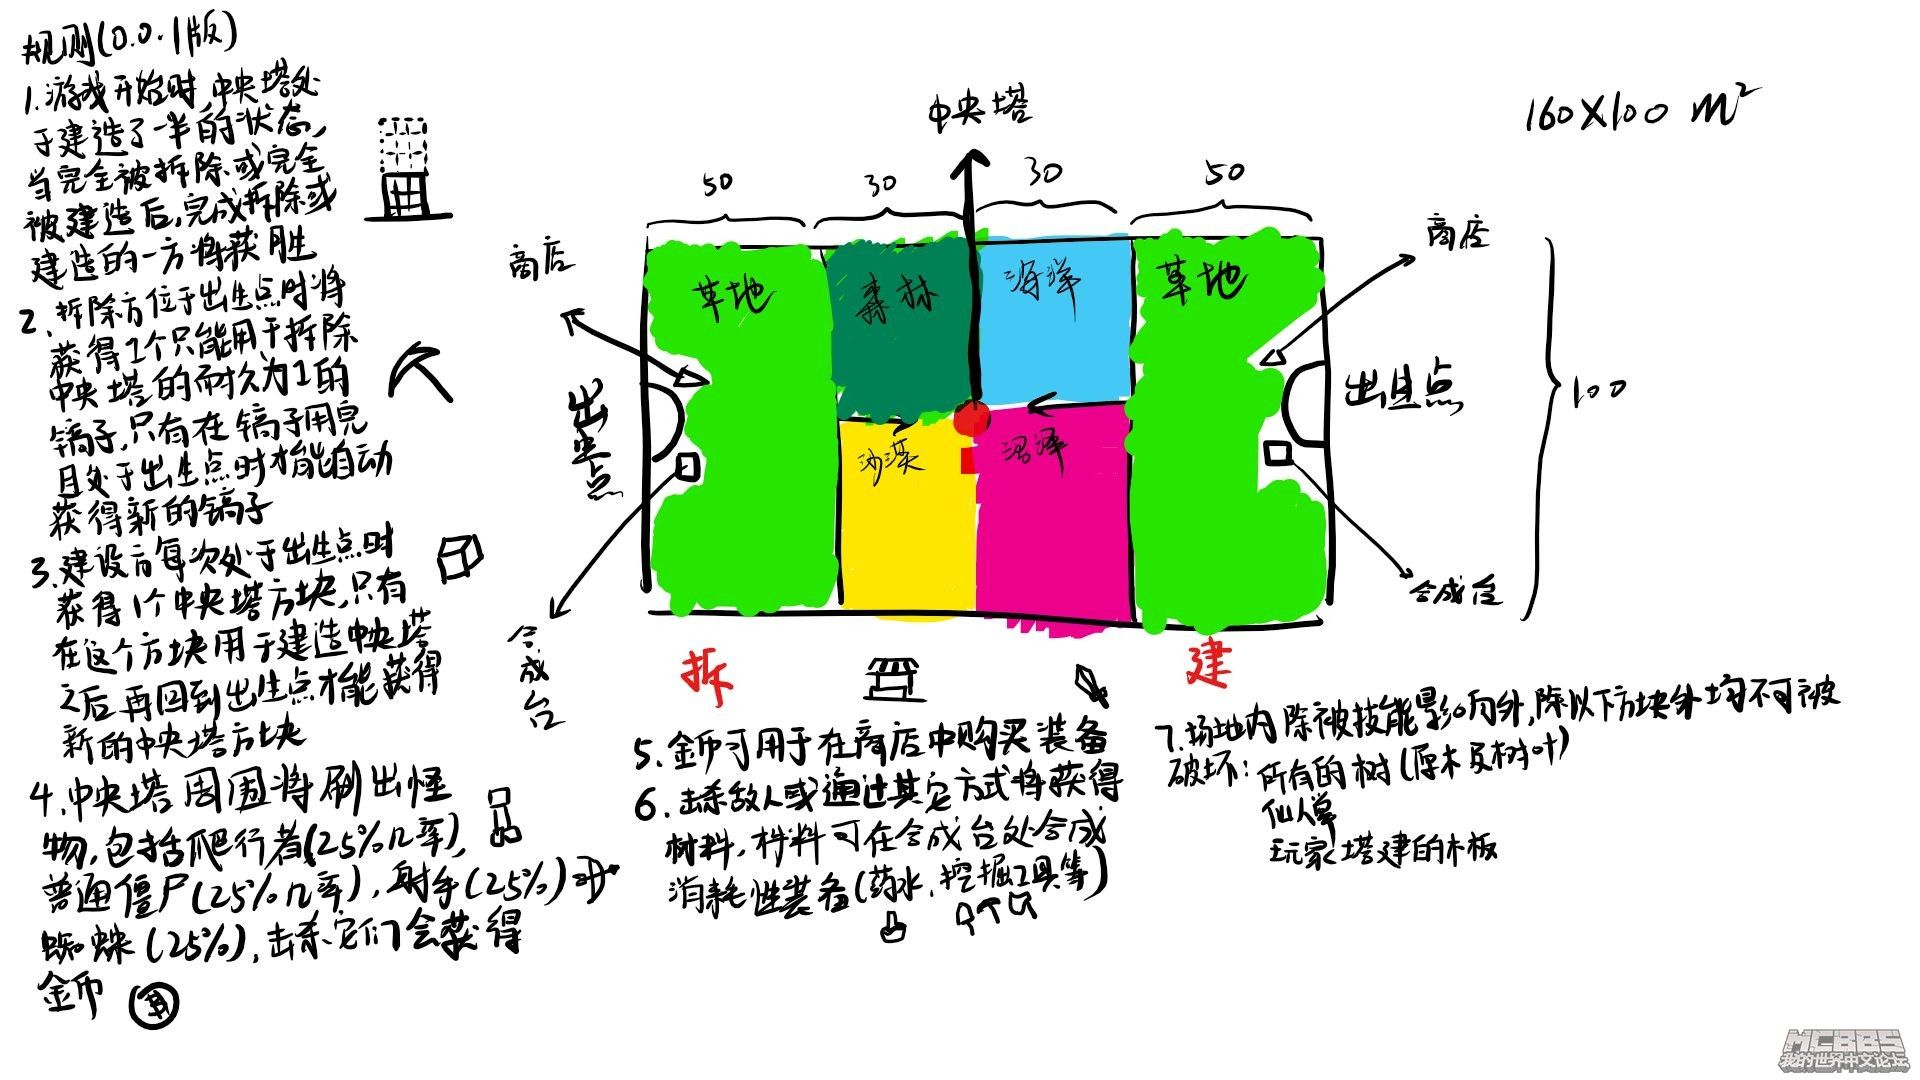 规则(0.0.1版)
1.游戏开始时中央塔处
于建造了一半的状态,
当完全被拆除或完全
被建造后,完成拆除或
建造的一方将获胜
2.拆除方位于出生点时将
获得1个只能用于拆除
中央塔的耐久为1的
镐子,只有在镐子用完
且处于出生点时才能自动
获得新的镐子
3.建设方每次处于出生点时
获得1个中央塔方块,只有
在这个方块用于建造中央塔
之后再回到出生点才能获得
新的中央塔方块
4.中央塔周围将刷出怪
物,包括爬行者(25%几率),
普通僵尸(25%几率),射手(25%)
蜘蛛(25%),击杀它们会获得
金币
中央塔
160X100 m²
50
30
30
50
商店
商店
草地
森林
海洋
草地
出生点
出生点
100
沙漠
沼泽
合成台
合成台
拆
建
5.金币可用于在商店中购买装备
6.击杀敌人或通过其它方式将获得
材料,材料可在合成台处合成
消耗性装备(药水,挖掘工具等)
7.场地内除被技能影响外,除以下方块外均不可被
破坏:所有的树(原木及树叶)
仙人掌
玩家塔建的木板
MCBBS
我的世界中文论坛